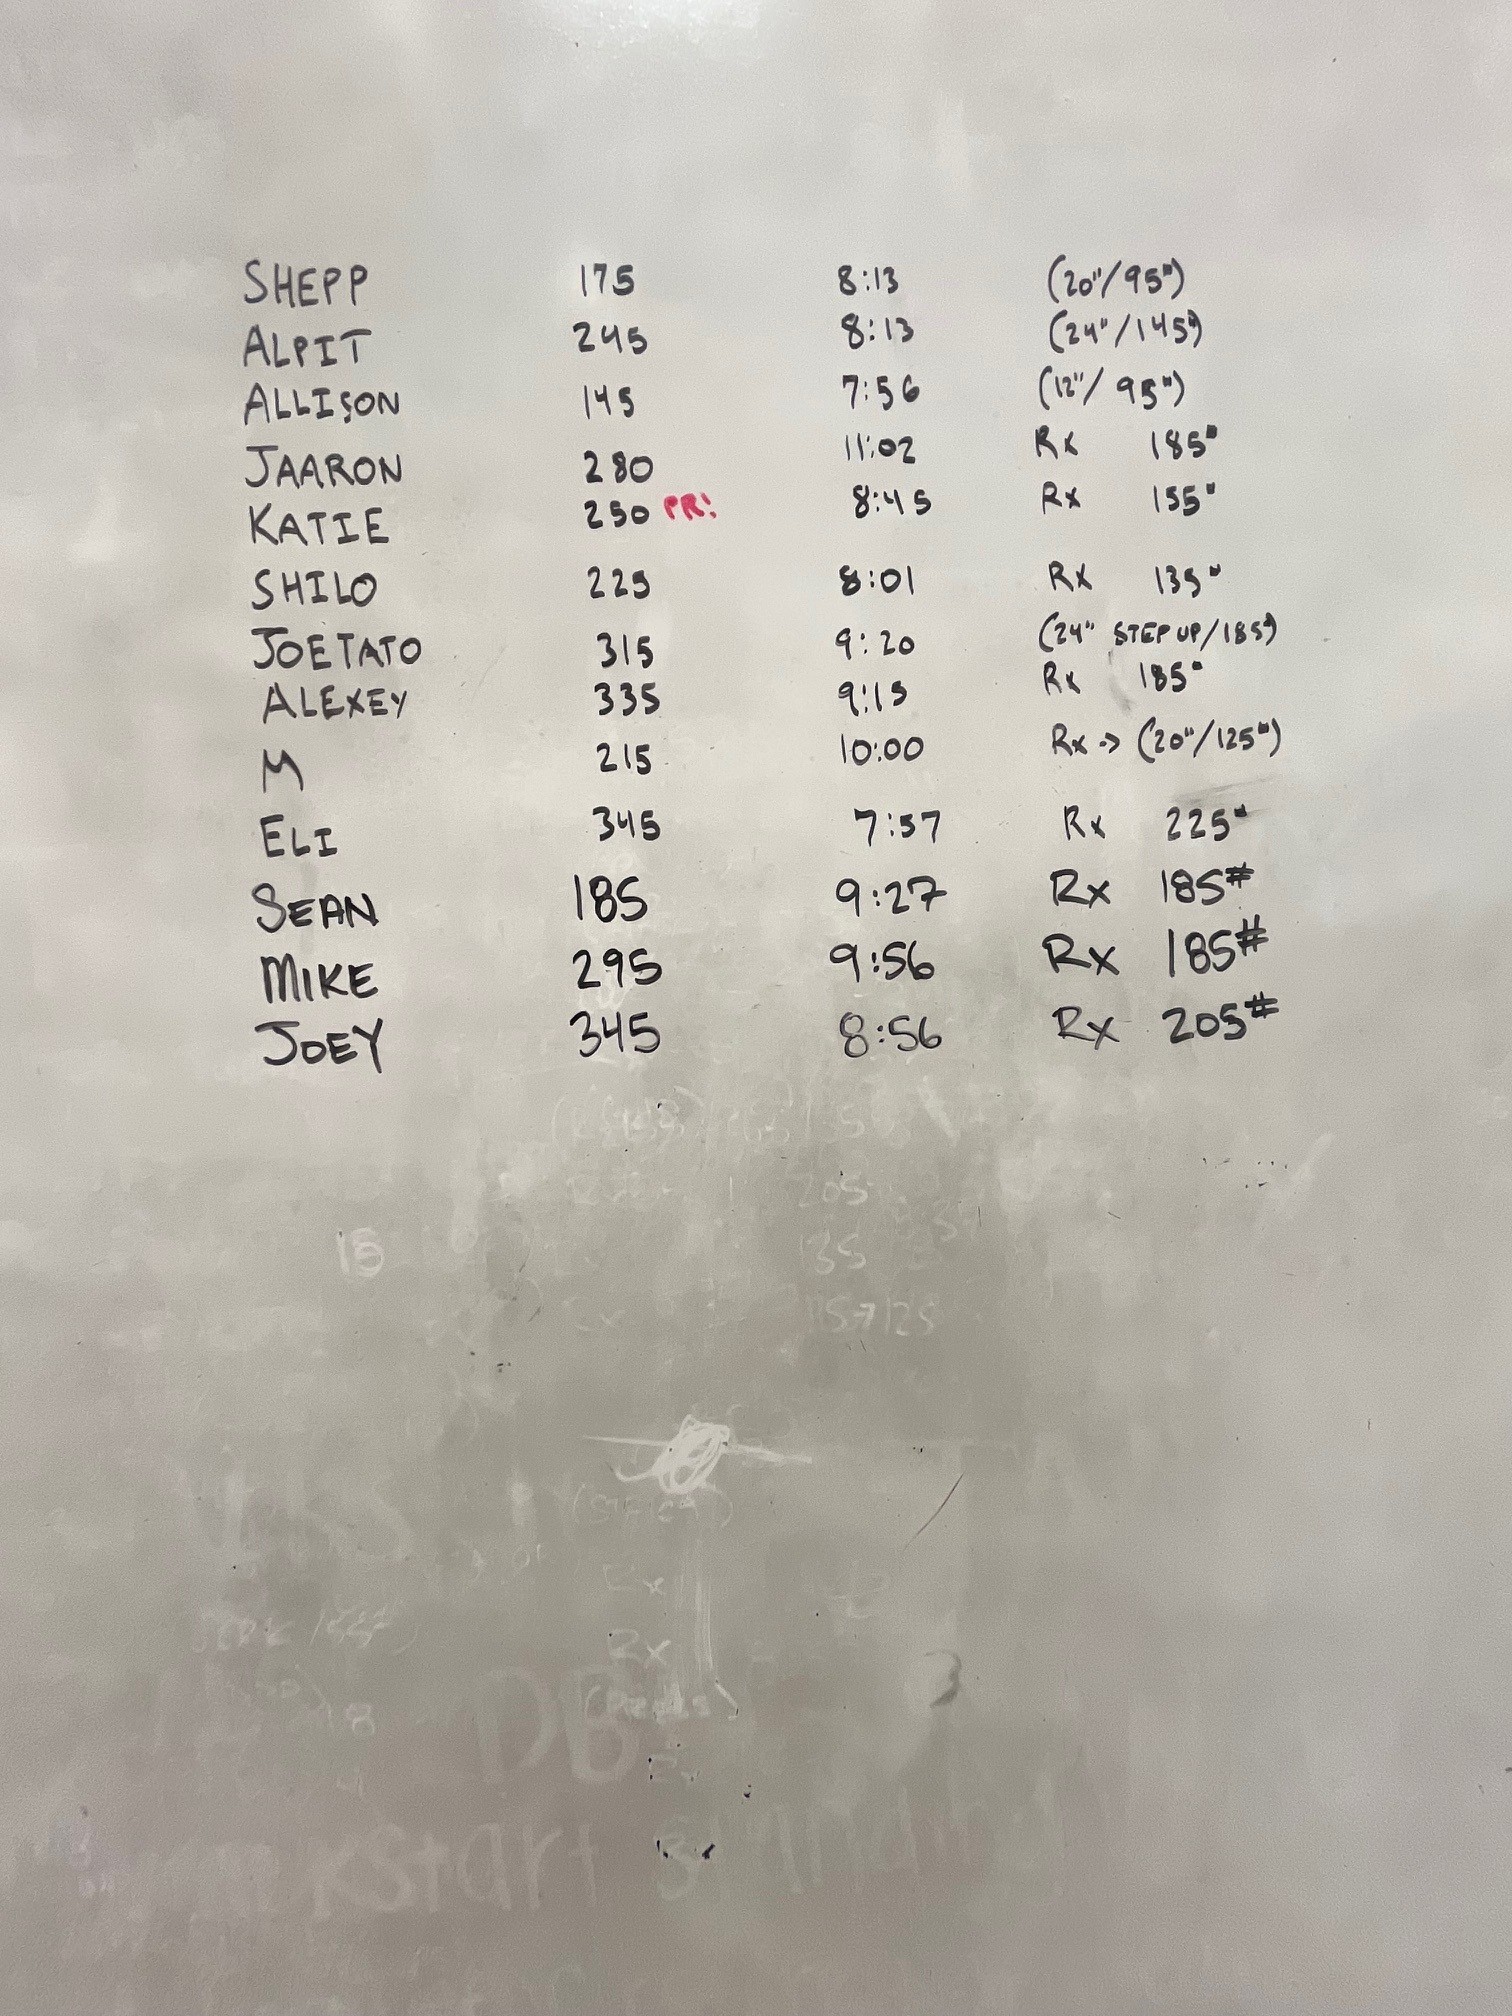 SHEPP 175 8:13 (20"/95#)
ALPIT 245 8:13 (24"/145#)
ALLISON 145 7:56 (12"/95#)
JAARON 280 11:02 Rx 185#
KATIE 250 PR! 8:45 Rx 155#
SHILO 225 8:01 Rx 135#
JOETATO 315 9:20 (24" STEP UP/185#)
ALEXEY 335 9:15 Rx 185#
M 215 10:00 Rx → (20"/125#)
ELI 345 7:57 Rx 225#
SEAN 185 9:27 Rx 185#
MIKE 295 9:56 Rx 185#
JOEY 345 8:56 Rx 205#
205
15
135
Rx
Rx
DB